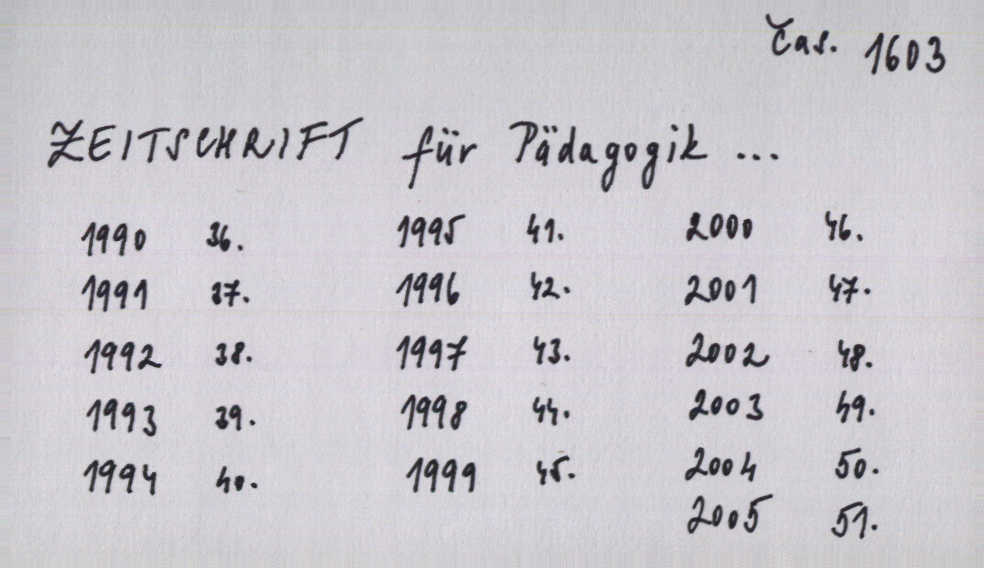 Čas. 1603
ZEITSCHRIFT für Pädagogik ...
1990 36. 1995 41. 2000 46.
1991 37. 1996 42. 2001 47.
1992 38. 1997 43. 2002 48.
1993 39. 1998 44. 2003 49.
1994 40. 1999 45. 2004 50.
2005 51.